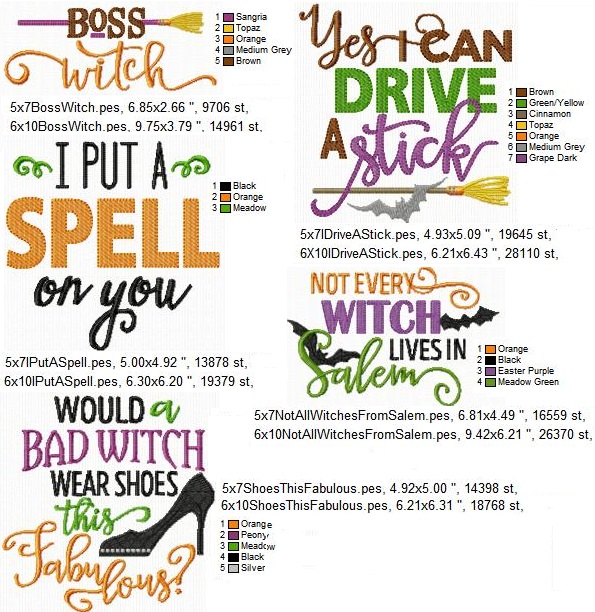 BOSS
witch
1 Sangria
2 Topaz
3 Orange
4 Medium Grey
5 Brown
5x7BossWitch.pes, 6.85x2.66 ", 9706 st,
6x10BossWitch.pes, 9.75x3.79 ", 14961 st,
Yes I CAN
DRIVE
A stick
1 Brown
2 Green/Yellow
3 Cinnamon
4 Topaz
5 Orange
6 Medium Grey
7 Grape Dark
5x7IDriveAStick.pes, 4.93x5.09 ", 19645 st,
6X10IDriveAStick.pes, 6.21x6.43 ", 28110 st,
I PUT A
SPELL
on you
1 Black
2 Orange
3 Meadow
5x7IPutASpell.pes, 5.00x4.92 ", 13878 st,
6x10IPutASpell.pes, 6.30x6.20 ", 19379 st,
NOT EVERY
WITCH
LIVES IN
Salem
1 Orange
2 Black
3 Easter Purple
4 Meadow Green
5x7NotAllWitchesFromSalem.pes, 6.81x4.49 ", 16559 st,
6x10NotAllWitchesFromSalem.pes, 9.42x6.21 ", 26370 st,
WOULD a
BAD WITCH
WEAR SHOES
this
Fabulous?
5x7ShoesThisFabulous.pes, 4.92x5.00 ", 14398 st,
6x10ShoesThisFabulous.pes, 6.21x6.31 ", 18768 st,
1 Orange
2 Peony
3 Meadow
4 Black
5 Silver